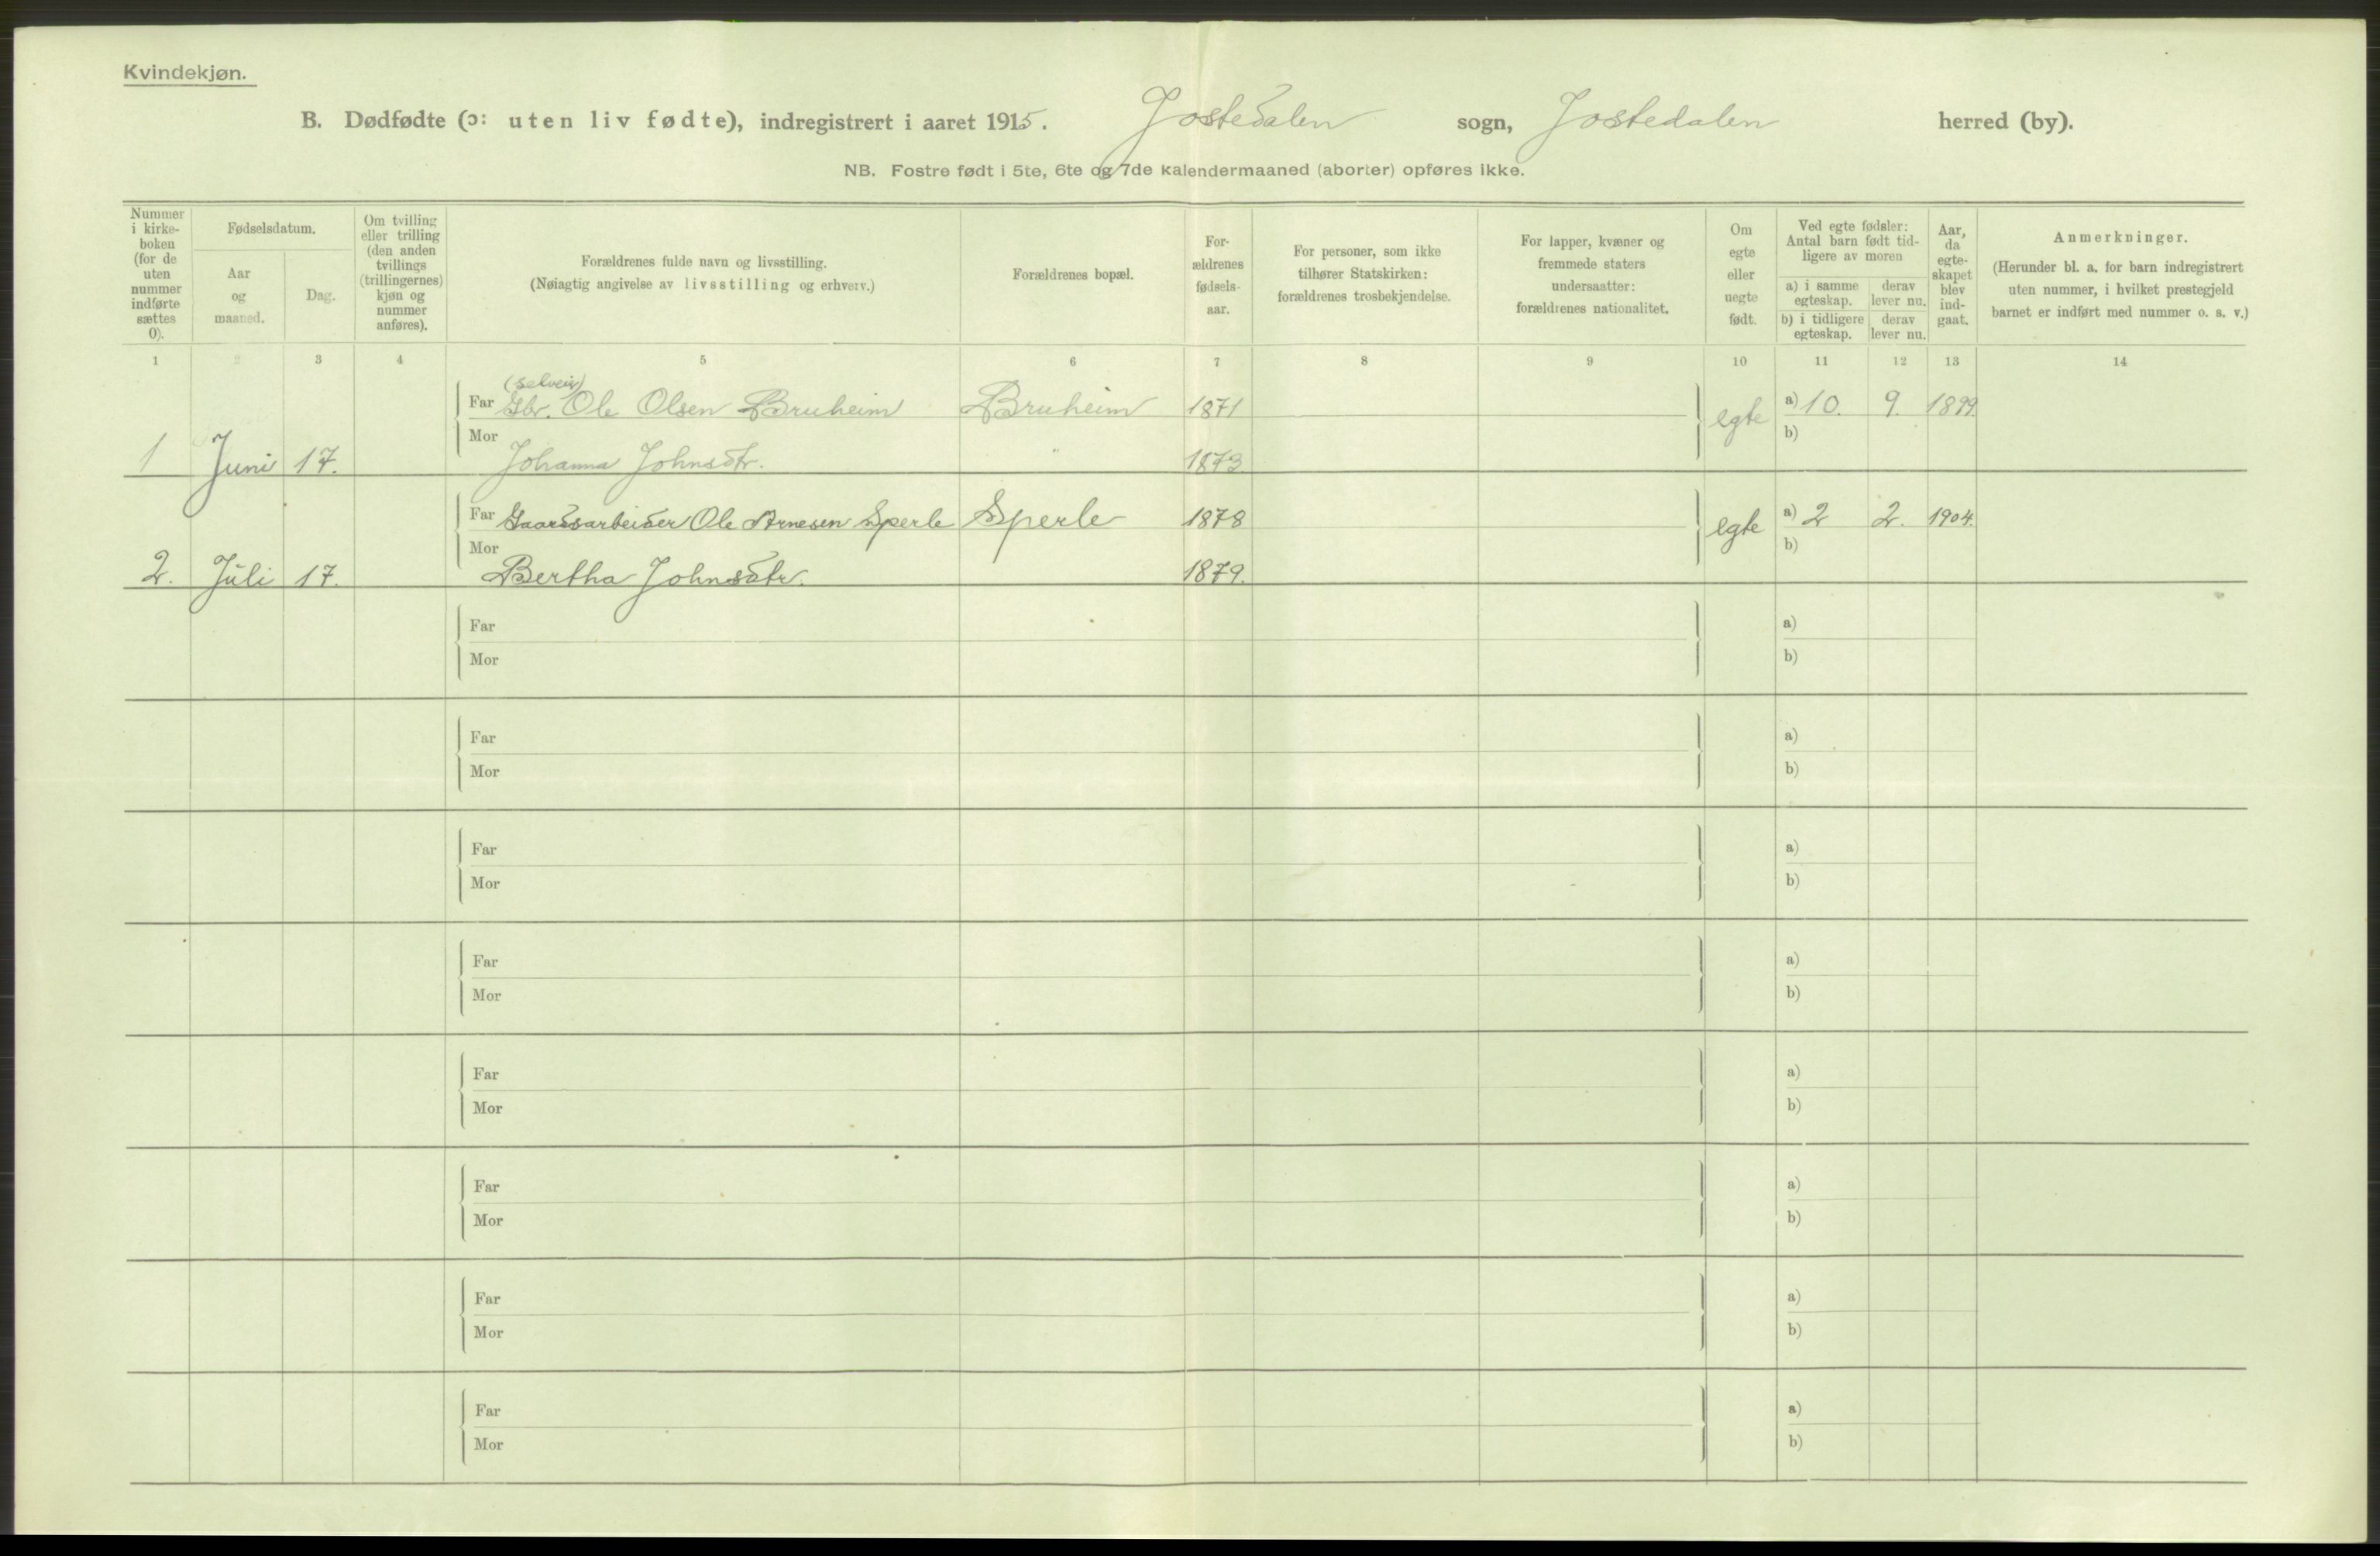 Kvindekjøn.
B. Dødfødte (ɔ: uten liv fødte), indregistrert i aaret 1915. Jostedalen sogn, Jostedalen herred (by).
NB. Fostre født i 5te, 6te og 7de kalendermaaned (aborter) opføres ikke.
Nummer i kirke-boken (for de uten nummer indførte sættes 0).
Fødselsdatum.
Aar og maaned.
Dag.
Om tvilling eller trilling (den anden tvillings (trillingernes) kjøn og nummer anføres).
Forældrenes fulde navn og livsstilling.
(Nøiagtig angivelse av livsstilling og erhverv.)
Forældrenes bopæl.
For-ældrenes fødsels-aar.
For personer, som ikke tilhører Statskirken: forældrenes trosbekjendelse.
For lapper, kvæner og fremmede staters undersaatter: forældrenes nationalitet.
Om egte eller uegte født.
Ved egte fødsler: Antal barn født tid-ligere av moren
a) i samme egteskap.
derav lever nu.
b) i tidligere egteskap.
derav lever nu.
Aar, da egte-skapet blev ind-gaat.
Anmerkninger.
(Herunder bl. a. for barn indregistrert uten nummer, i hvilket prestegjeld barnet er indført med nummer o. s. v.)
1 2 3 4 5 6 7 8 9 10 11 12 13 14
(selveier)
Far Gbr. Ole Olsen Bruheim Bruheim 1871 egte a) 10. 9. 1899.
1 Juni 17. Mor Johanna Johnsdtr. " 1873 b)
Far Gaardsarbeider Ole Arnesen Sperle Sperle 1878 egte a) 2 2. 1904.
2. Juli 17. Mor Bertha Johnsdtr. 1879. b)
Far a)
Mor b)
Far a)
Mor b)
Far a)
Mor b)
Far a)
Mor b)
Far a)
Mor b)
Far a)
Mor b)
Far a)
Mor b)
Far a)
Mor b)